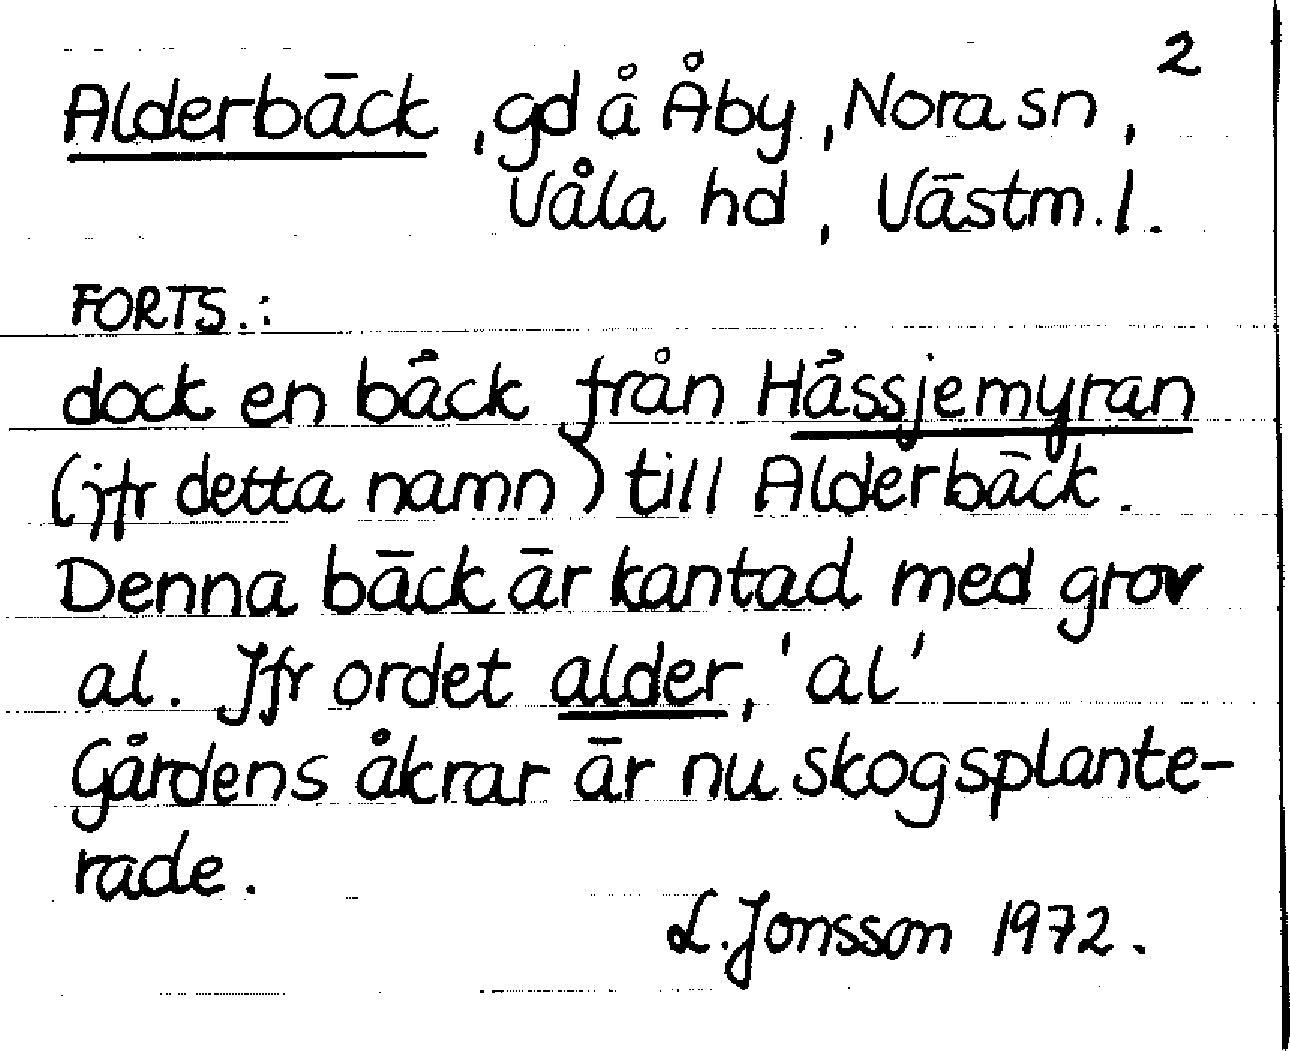 2
Alderbäck, gd å Åby, Nora sn,
Våla hd, Västm. l.
FORTS.:
dock en bäck från Hässjemyran
(jfr detta namn) till Alderbäck.
Denna bäck är kantad med grov
al. Jfr ordet alder, 'al'
Gårdens åkrar är nu skogsplante-
rade.
L. Jonsson 1972.